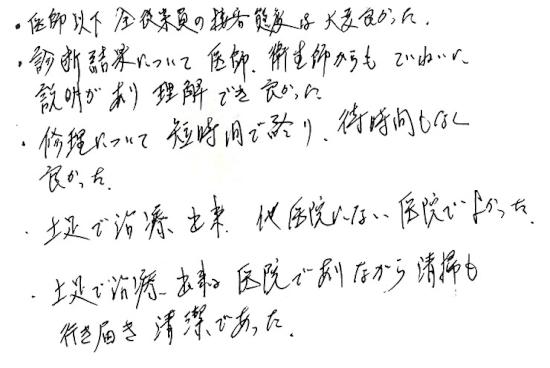 ・医師以下全従業員の接客態度は大変良かった.
・診断結果について医師、衛生師からもていねいに
説明があり理解でき良かった
・修理について短時間で終り、待時間もなく
良かった.
・土足で治療、出来、他医院にない医院でよかった.
・土足で治療、出来る医院でありながら清掃も
行き届き清潔であった.